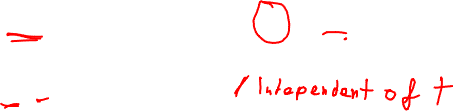 = O -
-- / Independent of t